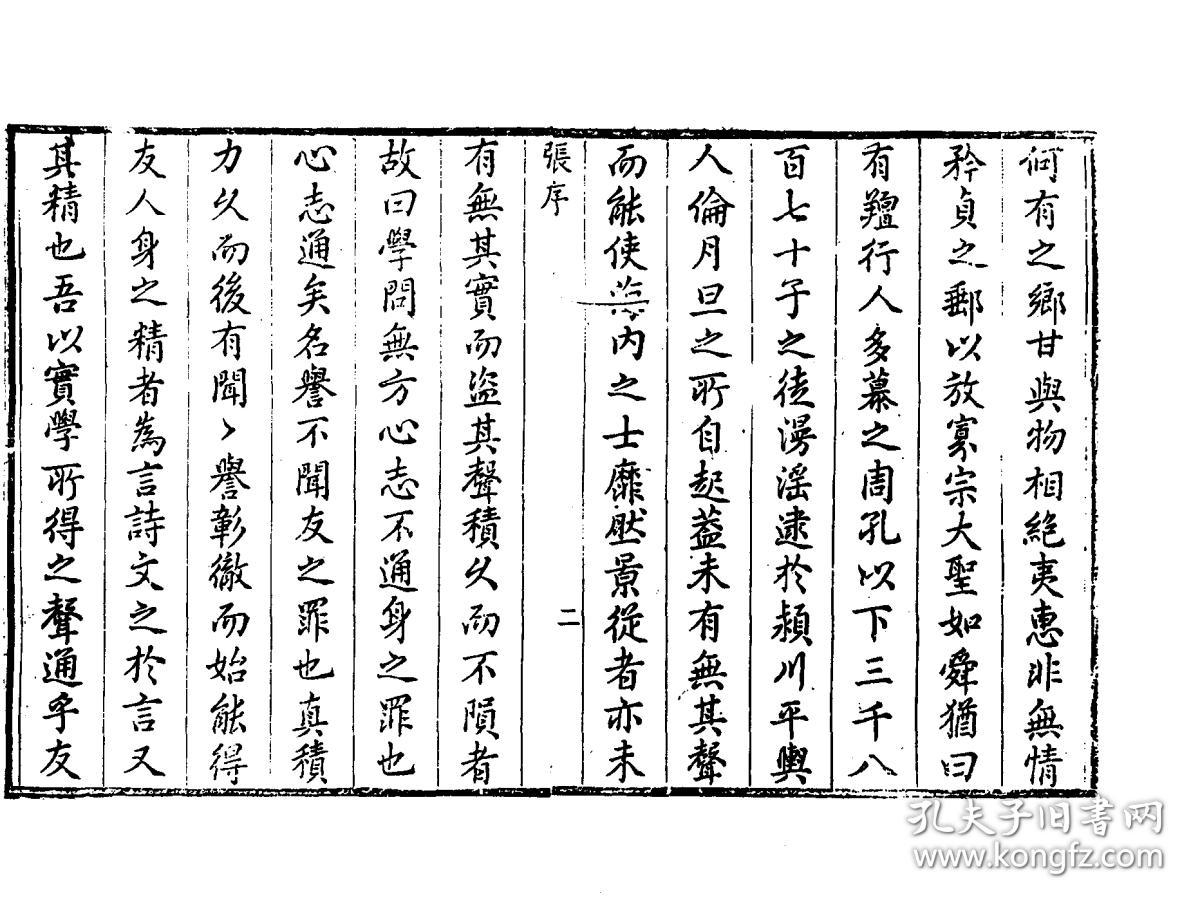 何有之鄉甘與物相絕夷惠非無情
矜貞之郵以放寡宗大聖如舜猶曰
有羶行人多慕之周孔以下三千八
百七十子之徒漫滛逮於潁川平輿
人倫月旦之所自起蓋未有無其聲
而能使海內之士靡然景從者亦未
張序
二
有無其實而盜其聲積久而不隕者
故曰學問無方心志不通身之罪也
心志通矣名譽不聞友之罪也真積
力久而後有聞〻譽彰徹而始能得
友人身之精者為言詩文之於言又
其精也吾以實學所得之聲通乎友
孔夫子旧书网
www.kongfz.com